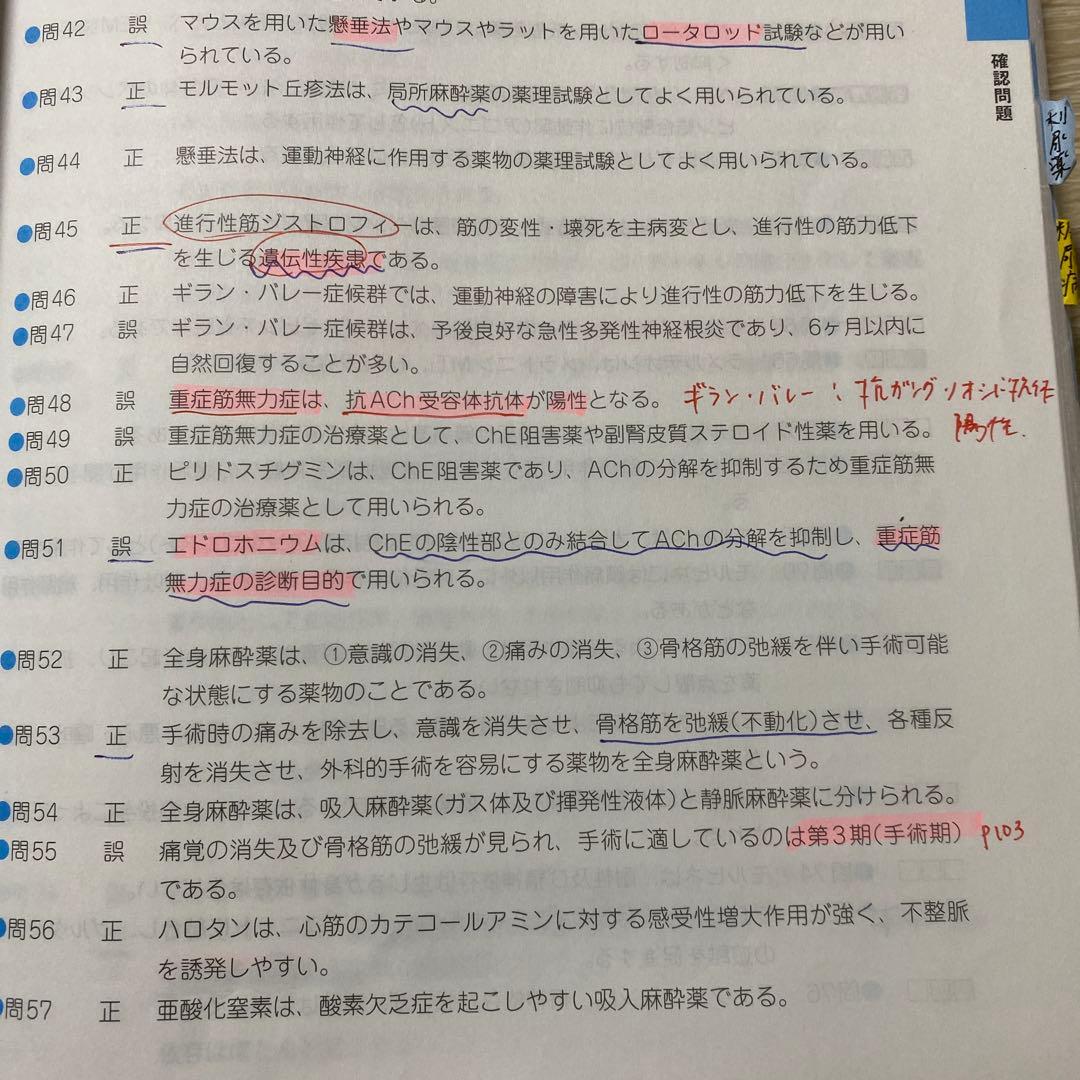 問42 誤 マウスを用いた懸垂法やマウスやラットを用いたロータロッド試験などが用い
られている。
問43 正 モルモット丘疹法は、局所麻酔薬の薬理試験としてよく用いられている。
問44 正 懸垂法は、運動神経に作用する薬物の薬理試験としてよく用いられている。
問45 正 進行性筋ジストロフィーは、筋の変性・壊死を主病変とし、進行性の筋力低下
を生じる遺伝性疾患である。
問46 正 ギラン・バレー症候群では、運動神経の障害により進行性の筋力低下を生じる。
問47 誤 ギラン・バレー症候群は、予後良好な急性多発性神経根炎であり、6ヶ月以内に
自然回復することが多い。
問48 誤 重症筋無力症は、抗ACh受容体抗体が陽性となる。
ギラン・バレー：抗ガングリオシド抗体
陽性.
問49 誤 重症筋無力症の治療薬として、ChE阻害薬や副腎皮質ステロイド性薬を用いる。
問50 正 ピリドスチグミンは、ChE阻害薬であり、AChの分解を抑制するため重症筋無
力症の治療薬として用いられる。
問51 誤 エドロホニウムは、ChEの陰性部とのみ結合してAChの分解を抑制し、重症筋
無力症の診断目的で用いられる。
問52 正 全身麻酔薬は、①意識の消失、②痛みの消失、③骨格筋の弛緩を伴い手術可能
な状態にする薬物のことである。
問53 正 手術時の痛みを除去し、意識を消失させ、骨格筋を弛緩(不動化)させ、各種反
射を消失させ、外科的手術を容易にする薬物を全身麻酔薬という。
問54 正 全身麻酔薬は、吸入麻酔薬(ガス体及び揮発性液体)と静脈麻酔薬に分けられる。
問55 誤 痛覚の消失及び骨格筋の弛緩が見られ、手術に適しているのは第3期(手術期) P103
である。
問56 正 ハロタンは、心筋のカテコールアミンに対する感受性増大作用が強く、不整脈
を誘発しやすい。
問57 正 亜酸化窒素は、酸素欠乏症を起こしやすい吸入麻酔薬である。
確認問題
利尿薬